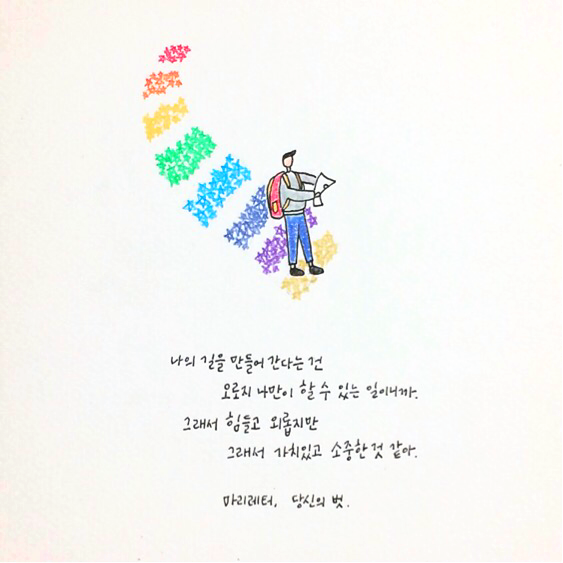 나의 길을 만들어 간다는 건
오로지 나만이 할 수 있는 일이니까.
그래서 힘들고 외롭지만
그래서 가치있고 소중한 것 같아.
마리레터, 당신의 벗.